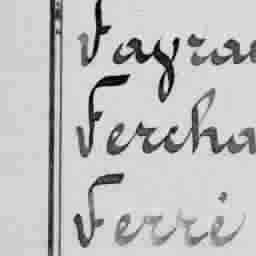 Fayra
Fercha
Ferré